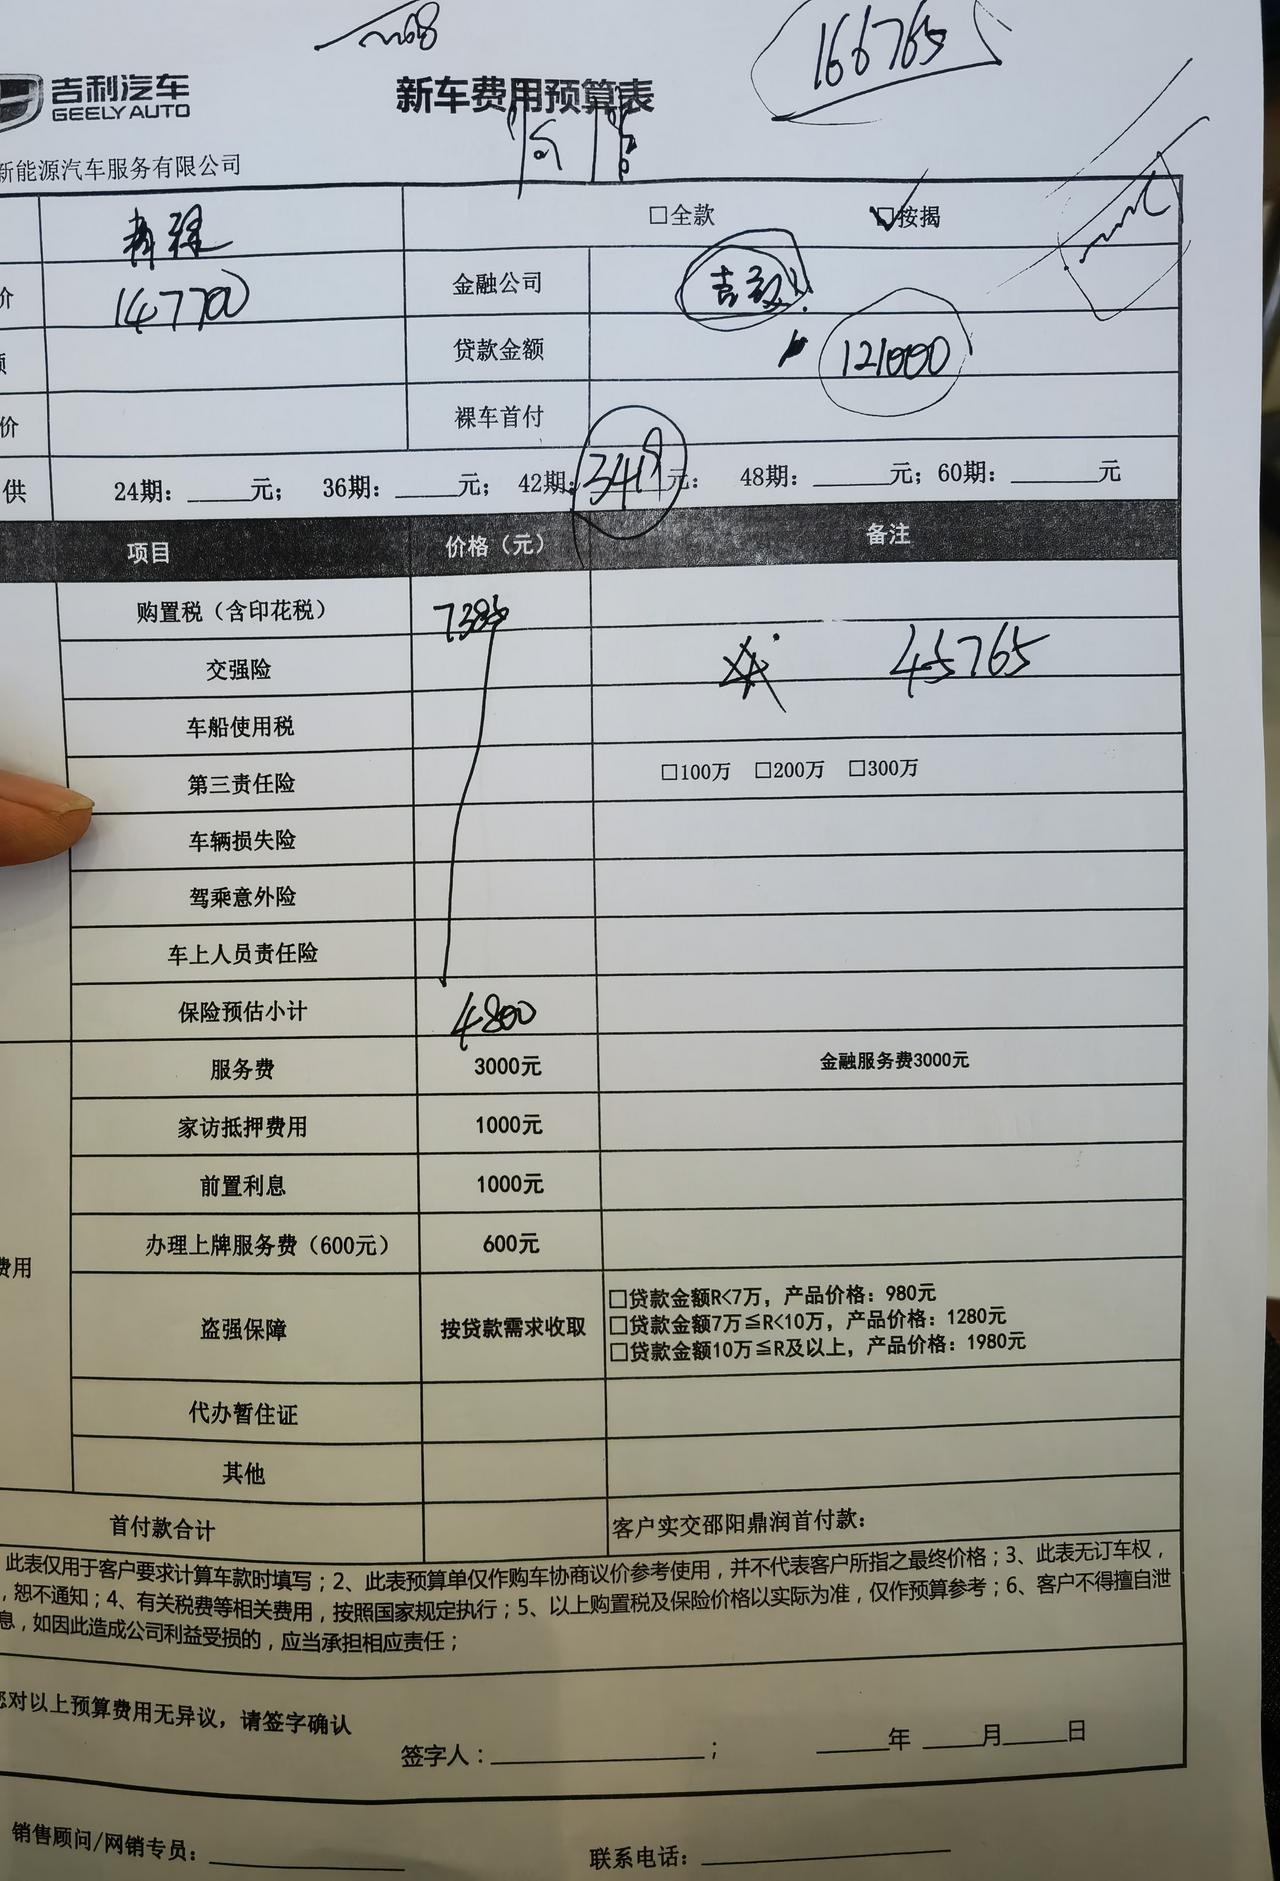 166765
吉利汽车
GEELY AUTO
新车费用预算表
新能源汽车服务有限公司
□全款 □按揭
价 147700 金融公司
额 贷款金额 121000
价 裸车首付
供 24期：_____元； 36期：_____元； 42期：3419元： 48期：______元；60期：______元
项目 价格（元） 备注
购置税（含印花税） 7385
交强险 45765
车船使用税
第三责任险 □100万 □200万 □300万
车辆损失险
驾乘意外险
车上人员责任险
保险预估小计 4800
服务费 3000元 金融服务费3000元
家访抵押费用 1000元
前置利息 1000元
费用 办理上牌服务费（600元） 600元
盗强保障 按贷款需求收取 □贷款金额R<7万，产品价格：980元
□贷款金额7万≦R<10万，产品价格：1280元
□贷款金额10万≦R及以上，产品价格：1980元
代办暂住证
其他
首付款合计 客户实交邵阳鼎润首付款：
此表仅用于客户要求计算车款时填写；2、此表预算单仅作购车协商议价参考使用，并不代表客户所指之最终价格；3、此表无订车权，
，恕不通知；4、有关税费等相关费用，按照国家规定执行；5、以上购置税及保险价格以实际为准，仅作预算参考；6、客户不得擅自泄
息，如因此造成公司利益受损的，应当承担相应责任；
您对以上预算费用无异议，请签字确认
签字人：__________________； ______年 _____月_____日
销售顾问/网销专员：________________ 联系电话：____________________